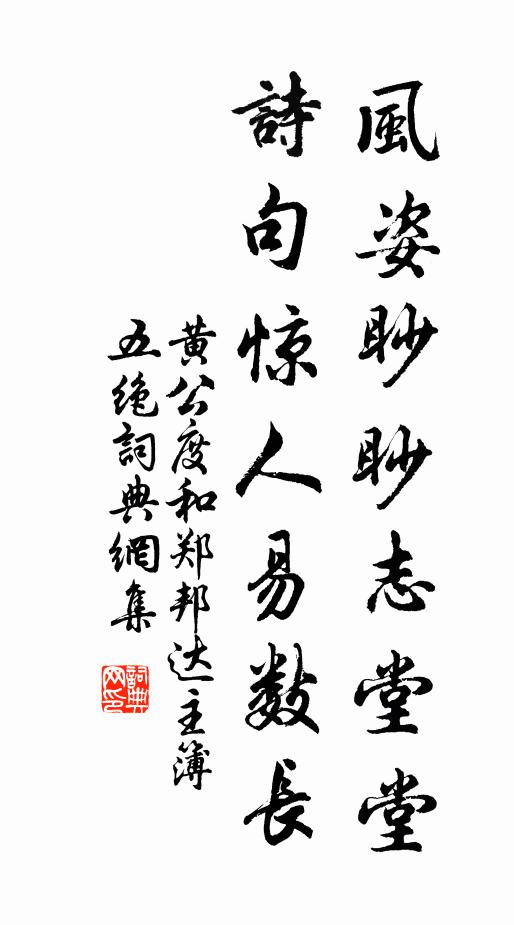 風姿眇眇志堂堂
詩句惊人易数長
黄公度和郑邦达主簿
五绝詞典網集
詞典
网印